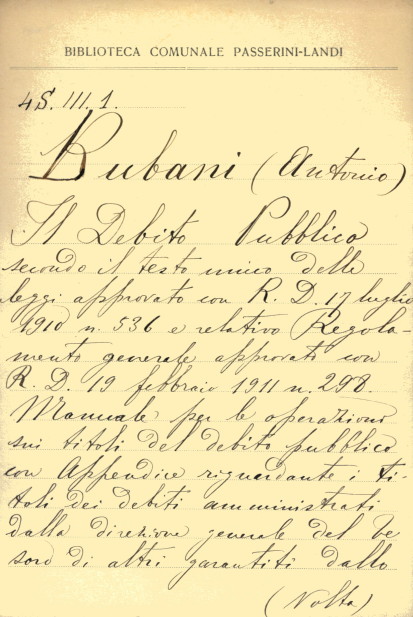 BIBLIOTECA COMUNALE PASSERINI-LANDI
4S. III. 1.
Bubani (Antonio)
Il Debito Pubblico
secondo il testo unico delle
leggi approvato con R. D. 17 luglio
1910 n. 536 e relativo Regola-
mento generale approvato con
R. D. 19 febbraio 1911 n. 298.
Manuale per le operazioni
sui titoli del debito pubblico
con Appendice riguardante i ti-
toli dei debiti amministrati
dalla direzione generale del te
soro di altri garantiti dallo
(Volta)